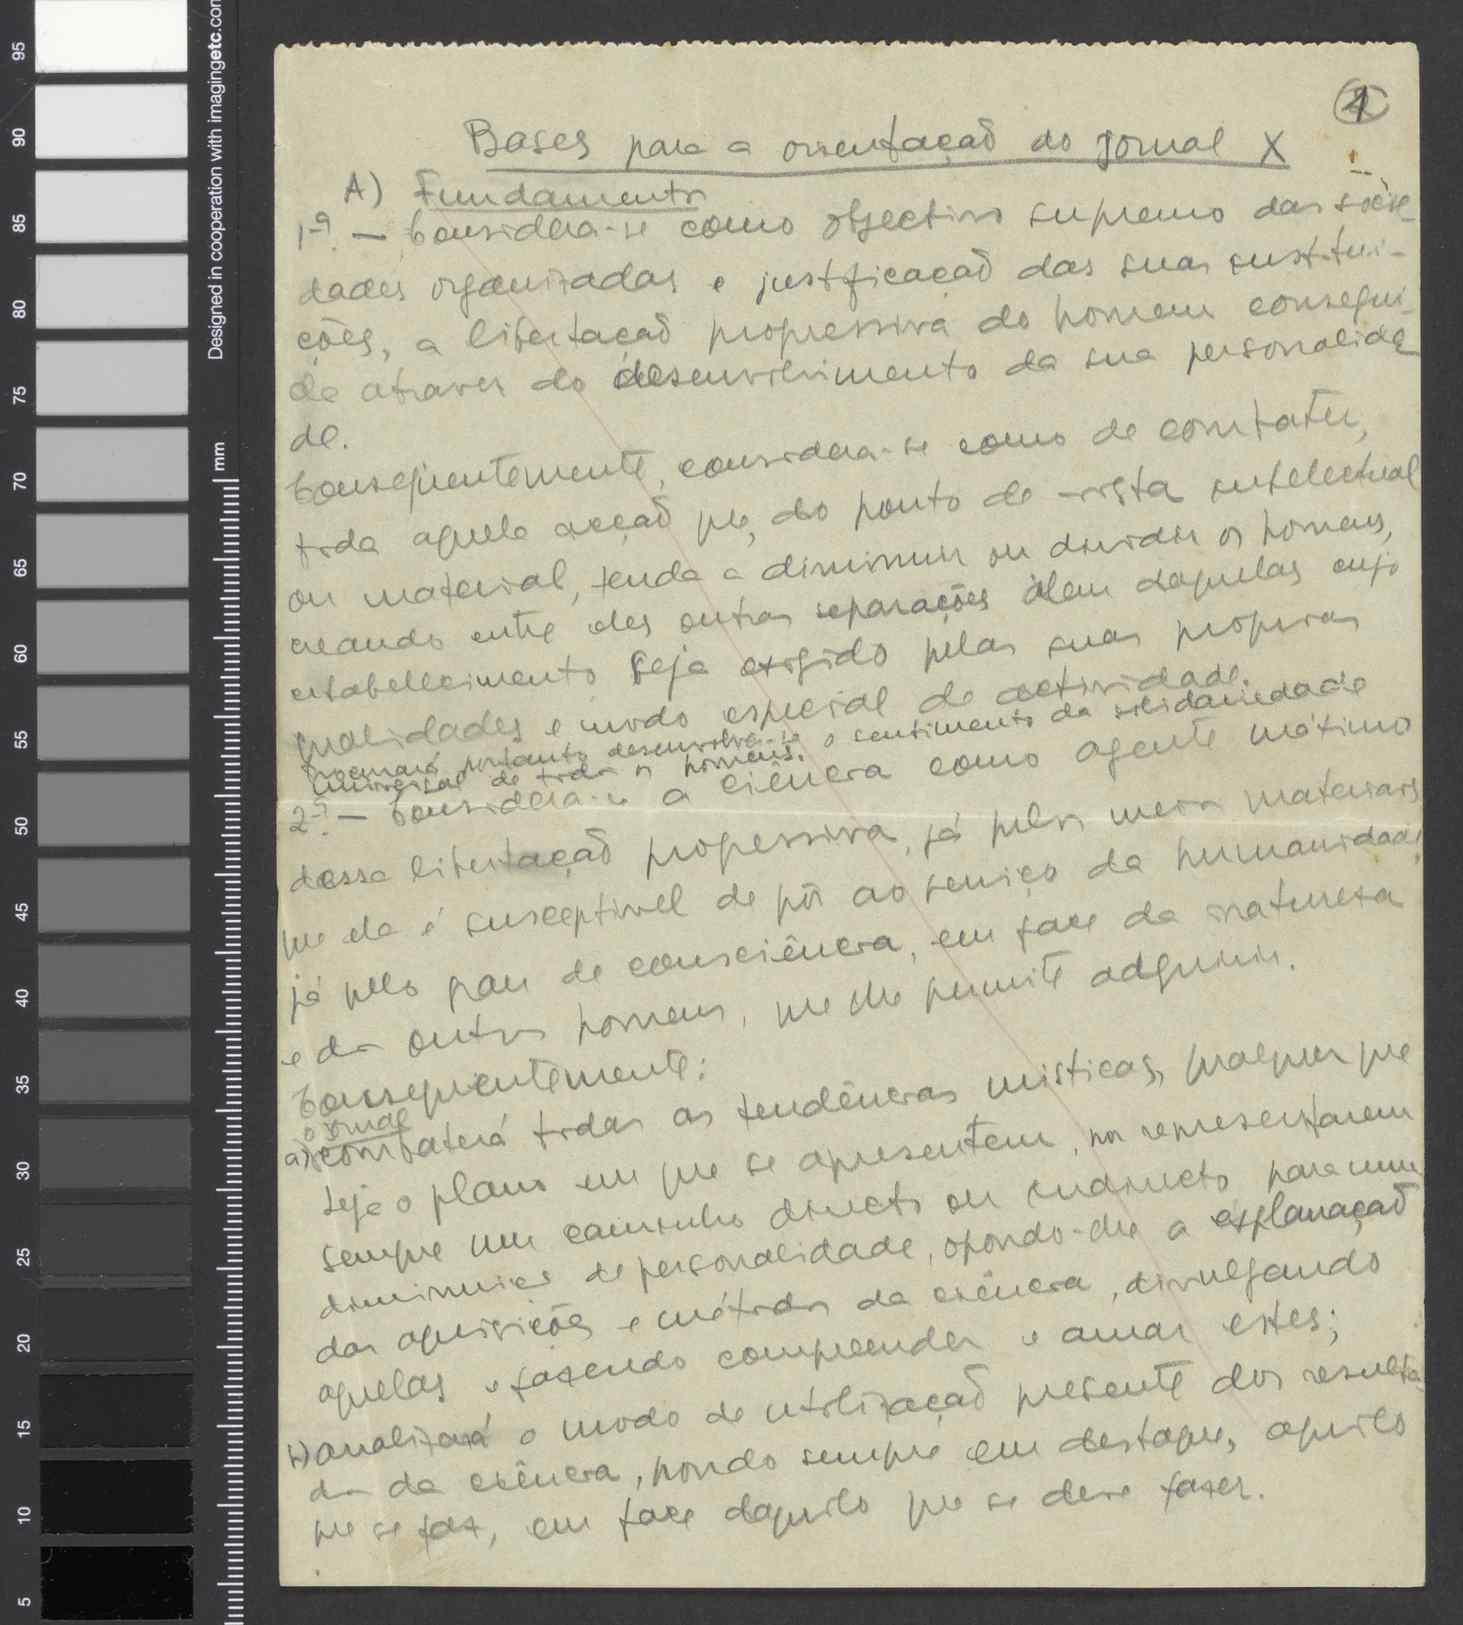 1
Bases para a orientação do jornal X
A) Fundamentos
1º. — Considera-se como objectivo supremo das socie-
dades organizadas e justificação das suas institui-
ções, a libertação progressiva do homem consegui-
da atravez do desenvolvimento da sua personalida-
de.
Consequentemente, considera-se como de combater,
toda aquela acção que, do ponto de vista intelectual
ou material, tenda a diminuir ou dividir os homens,
creando entre eles outras separações alem daquelas cujo
estabelecimento seja exigido pelas suas proprias
qualidades e modo especial de actividade.
Procurará portanto desenvolver-se o sentimento da solidariedade
universal de todos os homens.
2º. — Considera-se a ciência como agente máximo
dessa libertação progressiva, já pelos meios materiais
que ela é susceptivel de pôr ao serviço da humanidade,
já pelo grau de consciência, em face da natureza
e dos outros homens, que lhe permite adquirir.
Consequentemente:
o jornal
a) combaterá todas as tendências misticas, qualquer que
seja o plano em que se apresentem, por representarem
sempre um caminho directo ou indirecto para uma
diminuição de personalidade, opondo-lhe a explanação
das aquisições e métodos da ciência, divulgando
aquelas e fazendo compreender e amar estes;
b) analizará o modo de utilização presente dos resulta-
dos da ciência, pondo sempre em destaque, aquilo
que se faz, em face daquilo que se deve fazer.
Designed in cooperation with imagingetc.com
mm
95
90
85
80
75
70
65
60
55
50
45
40
35
30
25
20
15
10
5